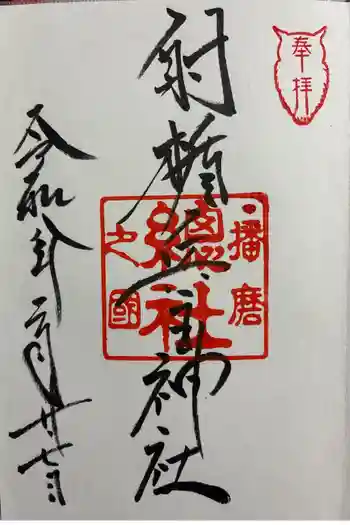 奉拝
射楯兵主神社
播磨
總社
之國
令和 年二月廿七日